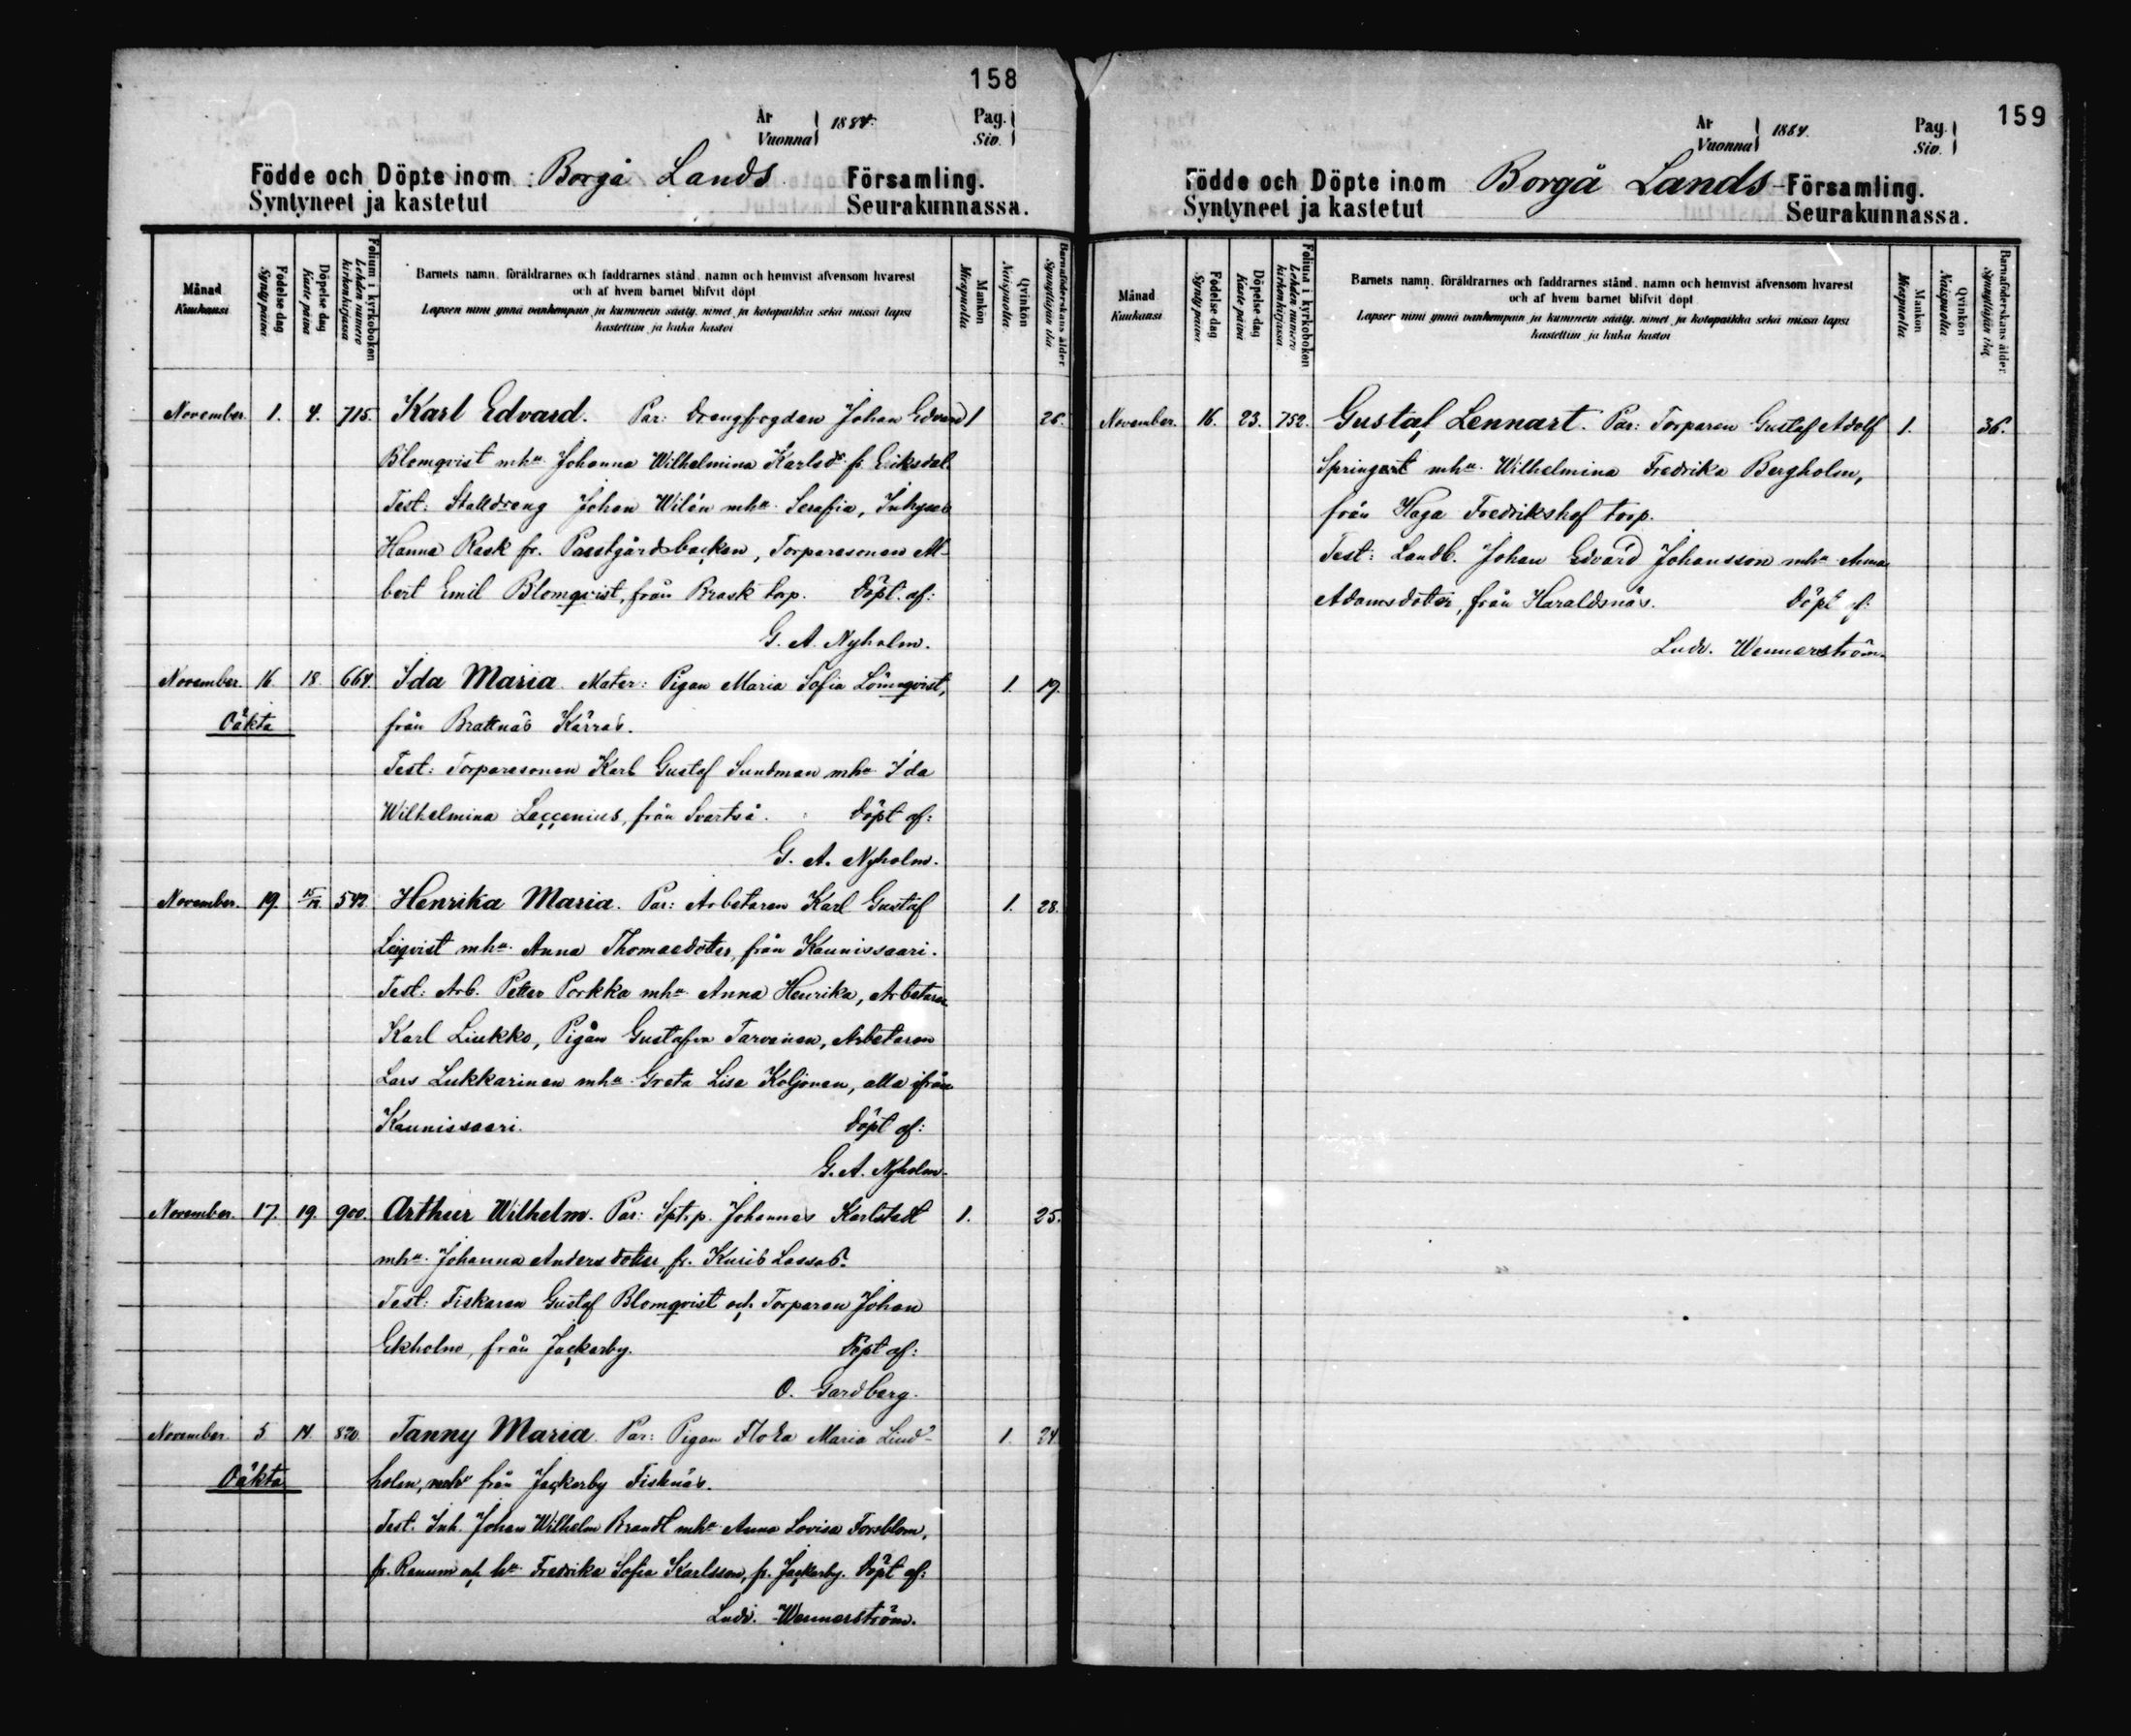 158
År Vuonna 1884. Pag. Siv.
Födde och Döpte inom Borgå Lands Församling.
Syntyneet ja kastetut Seurakunnassa.
Månad Kuukausi
Födelse-dag Synty päivä
Döpelse-dag Kaste päivä
Folium i kyrkoboken Lehden numero kirkonkirjassa
Barnets namn, föräldrarnes och faddrarnes stånd, namn och hemvist äfvensom hvarest
och af hvem barnet blifvit döpt
Lapsen nimi ynnä vanhempain ja kummein sääty, nimet ja kotopaikka sekä missä lapsi
kastettiin ja kuka kastoi
Mankön Miespuolta
Qvinkön Naispuolta
Barnaföderskans ålder Synnyttäjän ikä
November. 1. 4. 715. Karl Edvard. Par: Drengfogden Johan Edvard 1 26.
Blomqvist mh:u Johanna Wilhelmina Karlsdr fr. Eriksdal
Test: Stalldreng Johan Wilén mh:u Serafia, Inhyses
Hanna Rask fr. Prestgårdsbacken, Torparesonen Al-
bert Emil Blomqvist, från Brask torp. Döpt af:
G. A. Nyholm.
November. 16. 18. 664. Ida Maria. Mater: Pigan Maria Sofia Lönnqvist, 1. 19.
Oäkta från Brattnäs Kärras.
Test: Torparesonen Karl Gustaf Sundman mh:u Ida
Wilhelmina Leccenius, från Svartså. Döpt af:
G. A. Nyholm.
November. 19. 15/12 542 Henrika Maria. Par: Arbetaren Karl Gustaf 1. 28.
Leqvist mh:u Anna Thomasdotter, från Kaunissaari.
Test: Arb. Petter Porkka mh:u Anna Henrika, Arbetaren
Karl Liukko, Pigan Gustafva Tarvainen, Arbetaren
Lars Lukkarinen mh:u Greta Lisa Koljonen, alla ifrån
Kaunissaari. Döpt af:
G. A. Nyholm.
November. 17. 19. 900. Arthur Wilhelm. Par: Sptrp. Johannes Karlstedt 1. 25.
mh:u Johanna Andersdotter, fr. Kurib Lassab.
Test: Fiskaren Gustaf Blomqvist och Torparen Johan
Ekholm, från Jackarby. Döpt af:
O. Gardberg.
November. 5 14. 820. Fanny Maria. Par: Pigan Flora Maria Lind- 1. 24.
Oäkta holm, från Jackarby Fisknäs.
Test. Inh. Johan Wilhelm Brandt mh:u Anna Lovisa Forsblom,
fr. Renum och h:u Fredrika Sofia Karlsson, fr. Jackarby. Döpt af:
Ludv. Wennerström.
159
År Vuonna 1884. Pag. Siv.
Födde och Döpte inom Borgå Lands Församling.
Syntyneet ja kastetut Seurakunnassa.
Månad Kuukausi
Födelse-dag Synty päivä
Döpelse-dag Kaste päivä
Folium i kyrkoboken Lehden numero kirkonkirjassa
Barnets namn, föräldrarnes och faddrarnes stånd, namn och hemvist äfvensom hvarest
och af hvem barnet blifvit döpt
Lapsen nimi ynnä vanhempain ja kummein sääty, nimet ja kotopaikka sekä missä lapsi
kastettiin ja kuka kastoi
Mankön Miespuolta
Qvinkön Naispuolta
Barnaföderskans ålder Synnyttäjän ikä
November. 16. 23. 752. Gustaf Lennart. Par: Torparen Gustaf Adolf 1. 36.
Springert mh:u Wilhelmina Fredrika Bergholm,
från Haga Fredrikshof torp.
Test: Landb. Johan Edvard Johansson mh:u Anna
Adamsdotter, från Haraldsnäs. Döpt af:
Ludv. Wennerström.